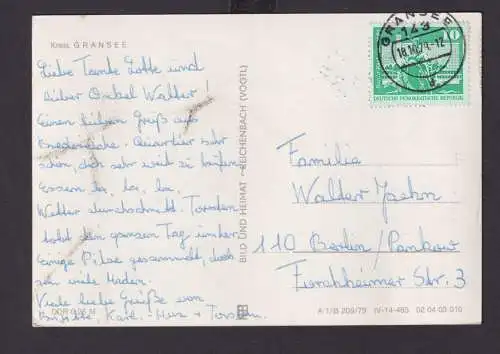 Kreis GRANSEE
Liebe Tante Lotte und
lieber Onkel Walter!
Einen lieben Gruß aus
Quartier sehr
schön, doch sehr weit zu laufen
Essen la, la, la.
Wetter durchschnittl. Torsten
tobt den ganzen Tag umher
Einige Pilze gesammelt, doch
sehr viele Maden.
Viele liebe Grüße von
Karl-Heinz + Torsten.
DDR 0,25 M
BILD UND HEIMAT REICHENBACH (VOGTL)
GRANSEE
143
18.10.79-12
10
DEUTSCHE DEMOKRATISCHE REPUBLIK
Familie
Walter Jaehn
110 Berlin/Pankow
Str. 3
A 1/B 209/79 IV-14-465 02 04 03 010